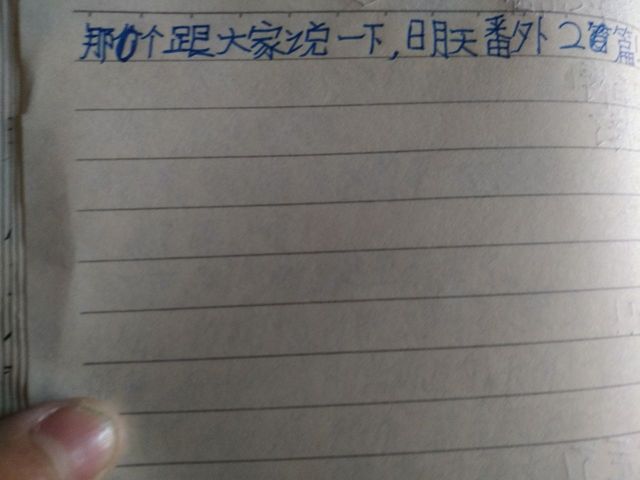 那个跟大家说一下,明天番外2篇